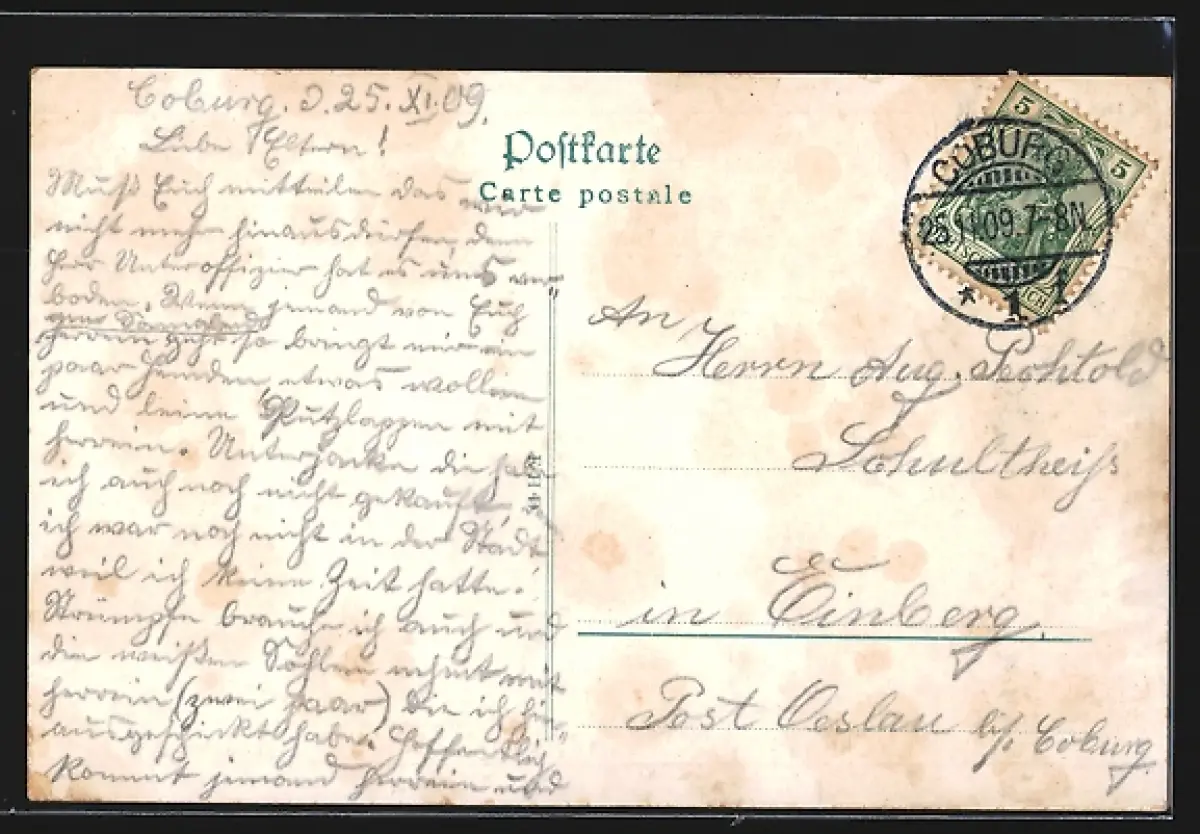 Coburg. d. 25. XI. 09.
Liebe Eltern!
Muß Euch mitteilen das wir
nicht mehr hinausdürfen, denn
Herr Unteroffizier hat es uns ver
boden. Wenn jemand von Euch
herrein geht so bringt mir ein
paar Hemden, etwas wollene
und leine Putzlappen mit
herrein. Unterjacke die habe
ich auch noch nicht gekauft,
ich war noch nicht in der Stadt
weil ich keine Zeit hatte.
Strümpfe brauche ich auch und
die weißen Sohlen nehmt mit
herrein (zwei paar) die ich hin-
ausgeschickt habe. Hoffentlich
kommt jemand herrein und
Postkarte
Carte postale
5
5
COBURG
25.11.09.7-8N.
* 1
An
Herrn Aug. Pechtold
Schultheiß
in Einberg.
Post Oeslau b/. Coburg